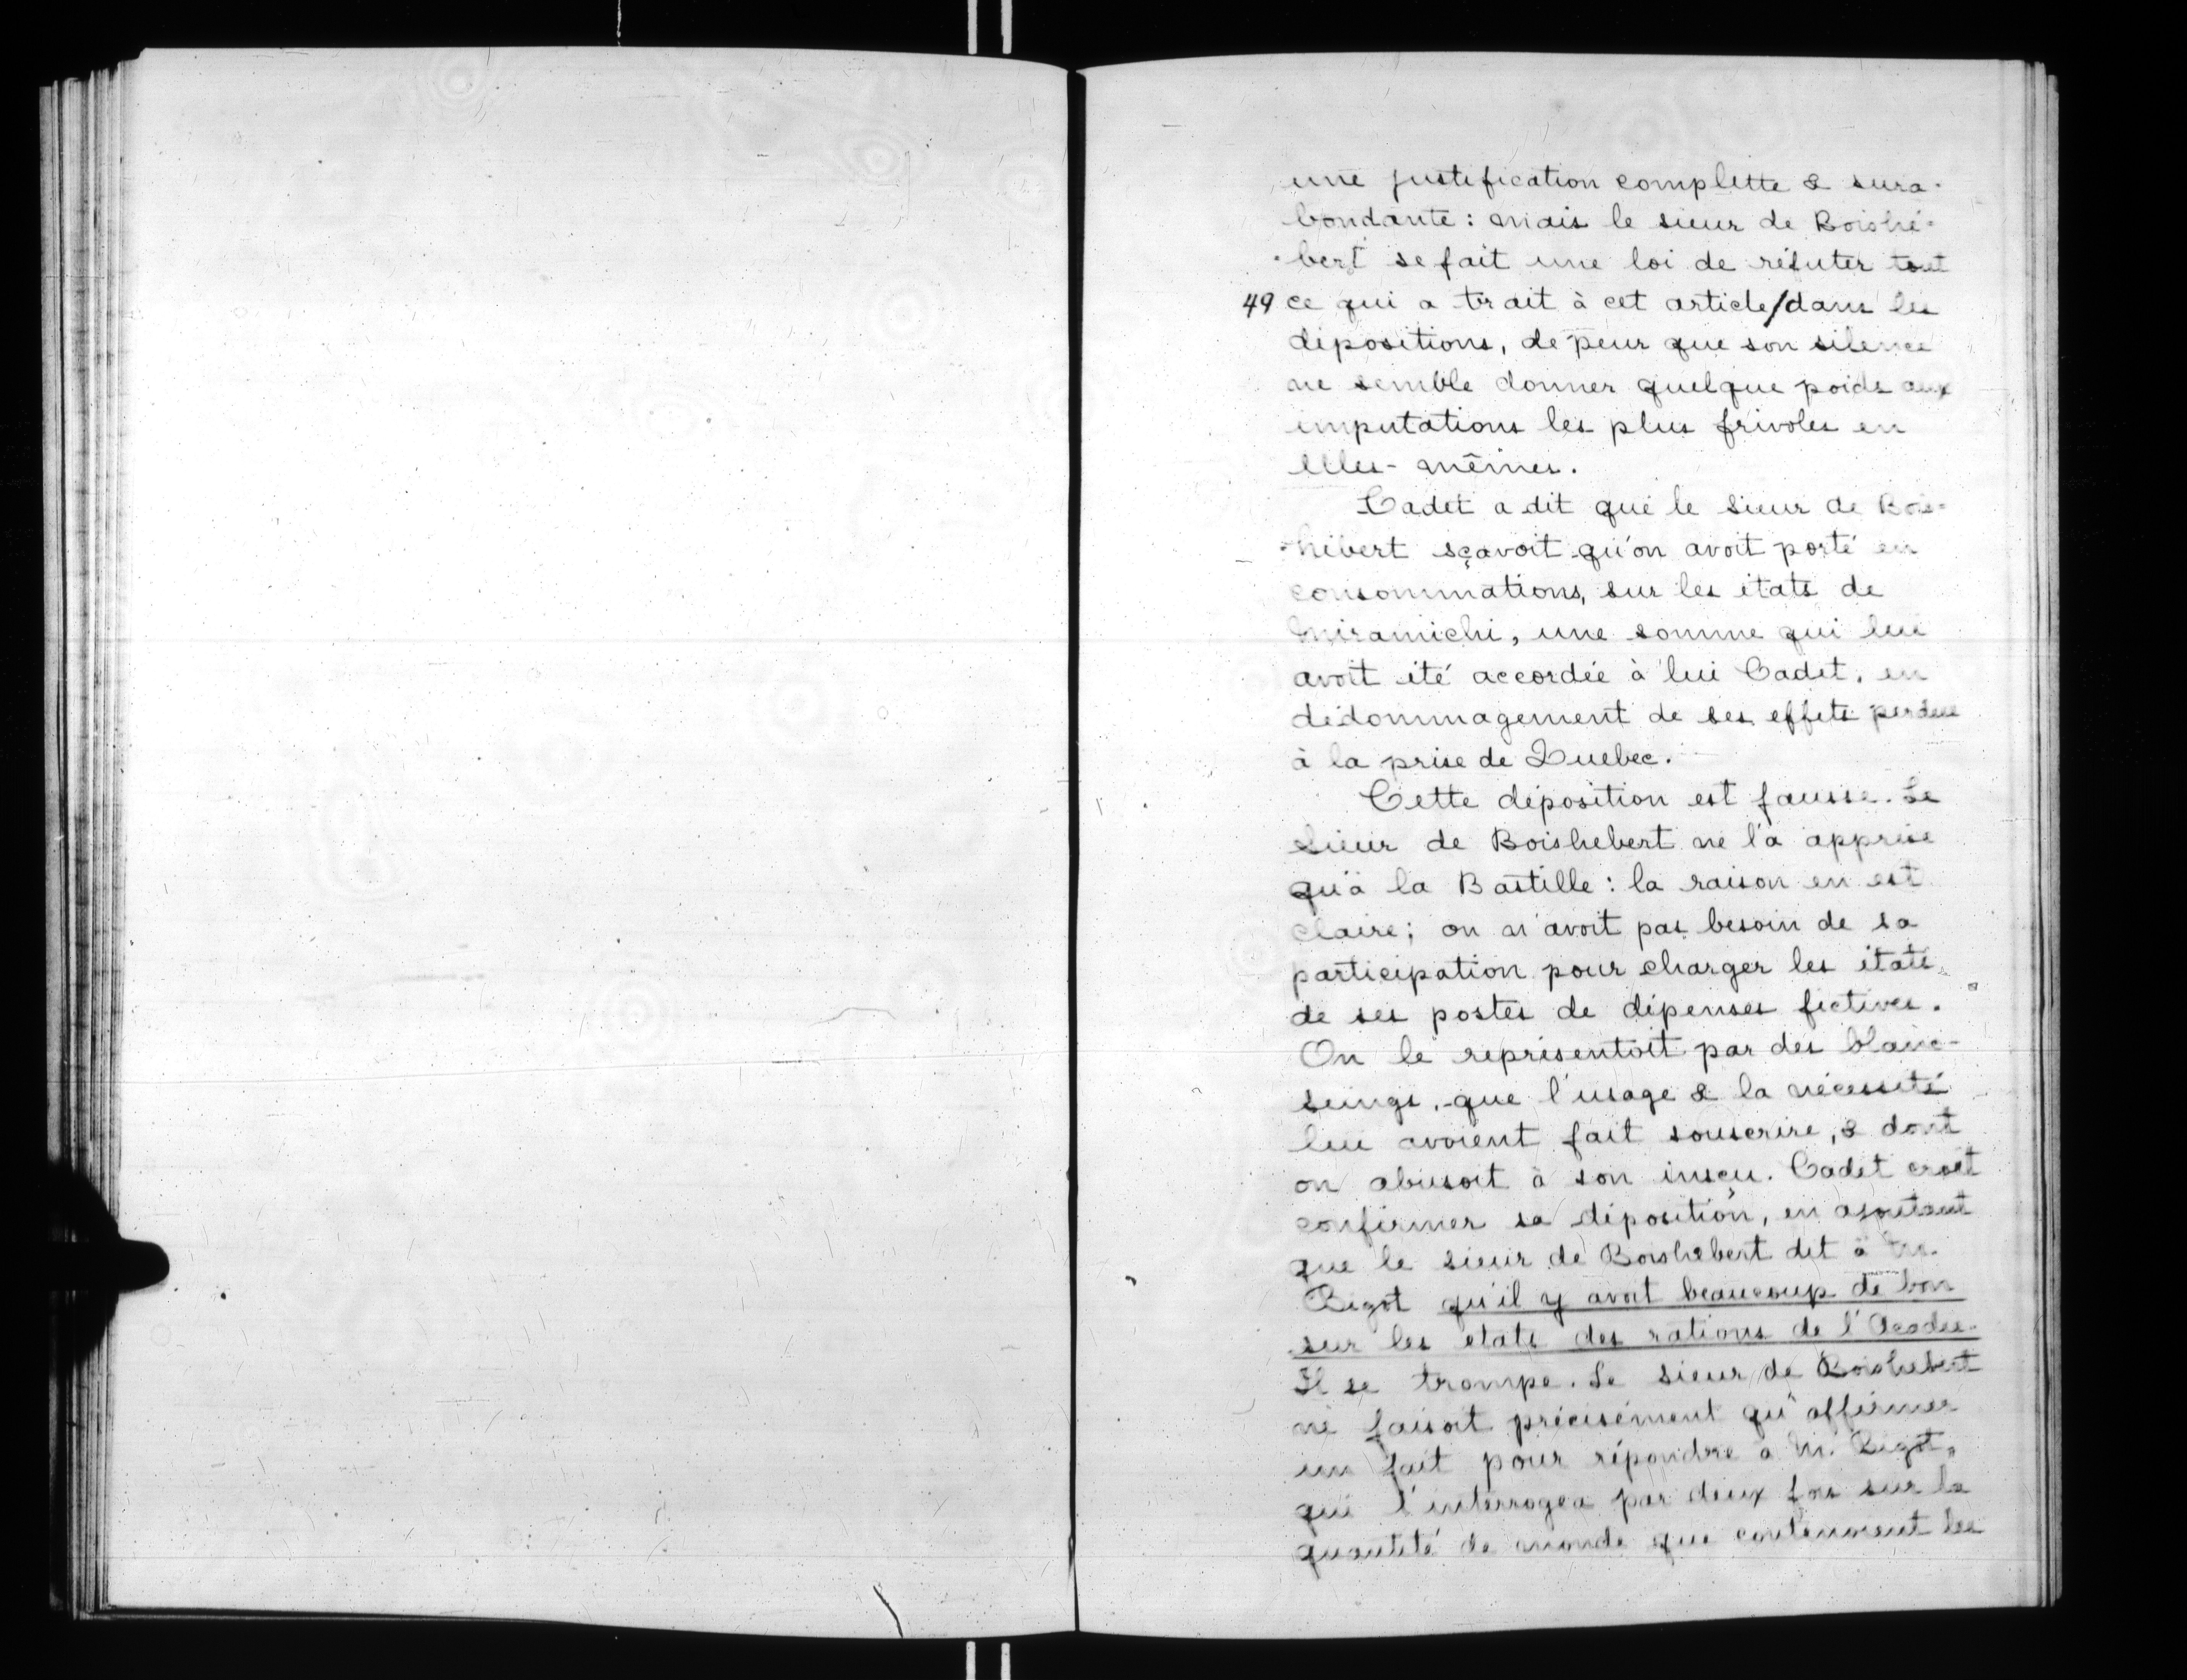 une justification complette & sura-
bondante : mais le sieur de Boishé-
-bert se fait une loi de réfuter tout
49 ce qui a trait à cet article/dans les
dépositions, de peur que son silence
ne semble donner quelque poids aux
imputations les plus frivoles en
elles-mêmes.
Cadet a dit que le Sieur de Bois-
-hébert sçavoit qu'on avoit porté en
consommations, sur les états de
Miramichi, une somme qui lui
avoit été accordée à lui Cadet, en
dédommagement de ses effets perdus
à la prise de Quebec.
Cette déposition est fausse. Le
Sieur de Boishebert ne l'a apprise
qu'à la Bastille : la raison en est
claire ; on n'avoit pas besoin de sa
participation pour charger les états
de ses postes de dépenses fictives.
On le représentoit par des blanc-
seings, que l'usage & la nécessité
lui avoient fait souscrire, & dont
on abusoit à son insçu. Cadet croit
confirmer sa déposition, en ajoutant
que le sieur de Boishebert dit à M.
Bigot qu'il y avoit beaucoup de bon
sur les etats des rations de l'Acadie.
Il se trompe. Le sieur de Boishebert
ne faisoit précisément qu'affirmer
un fait pour répondre à M. Bigot,
qui l'interrogea par deux fois sur la
quantité de monde que contenoient les